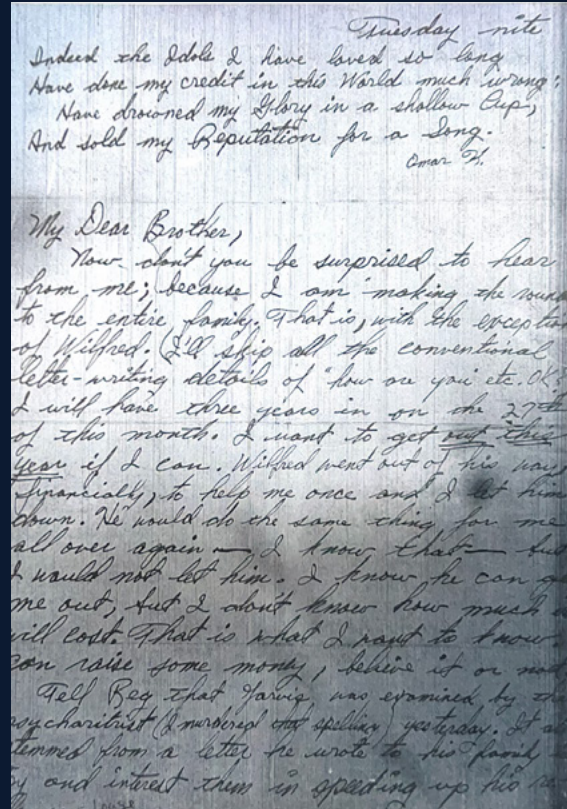 Tuesday nite
Indeed the Idols I have loved so long
Have done my credit in this World much wrong:
Have drowned my Glory in a shallow Cup,
And sold my Reputation for a Song.
Omar K.
My Dear Brother,
Now don't you be surprised to hear
from me; because I am making the roun
to the entire family. That is, with the exceptio
of Wilfred. (I'll skip all the conventional
letter-writing details of "how are you etc. OK?
I will have three years in on the 27th
of this month. I want to get out this
year if I can. Wilfred went out of his way,
financially, to help me once and I let him
down. He would do the same thing for me
all over again — I know that — but
I would not let him. I know he can ge
me out, but I don't know how much
will cost. That is what I want to know.
can raise some money, believe it or not
Tell Reg that Jarvis was examined by th
sycharitrist (I murdered that spelling) yesterday. It a
temmed from a letter he wrote to his
and interest them in speeding up his re